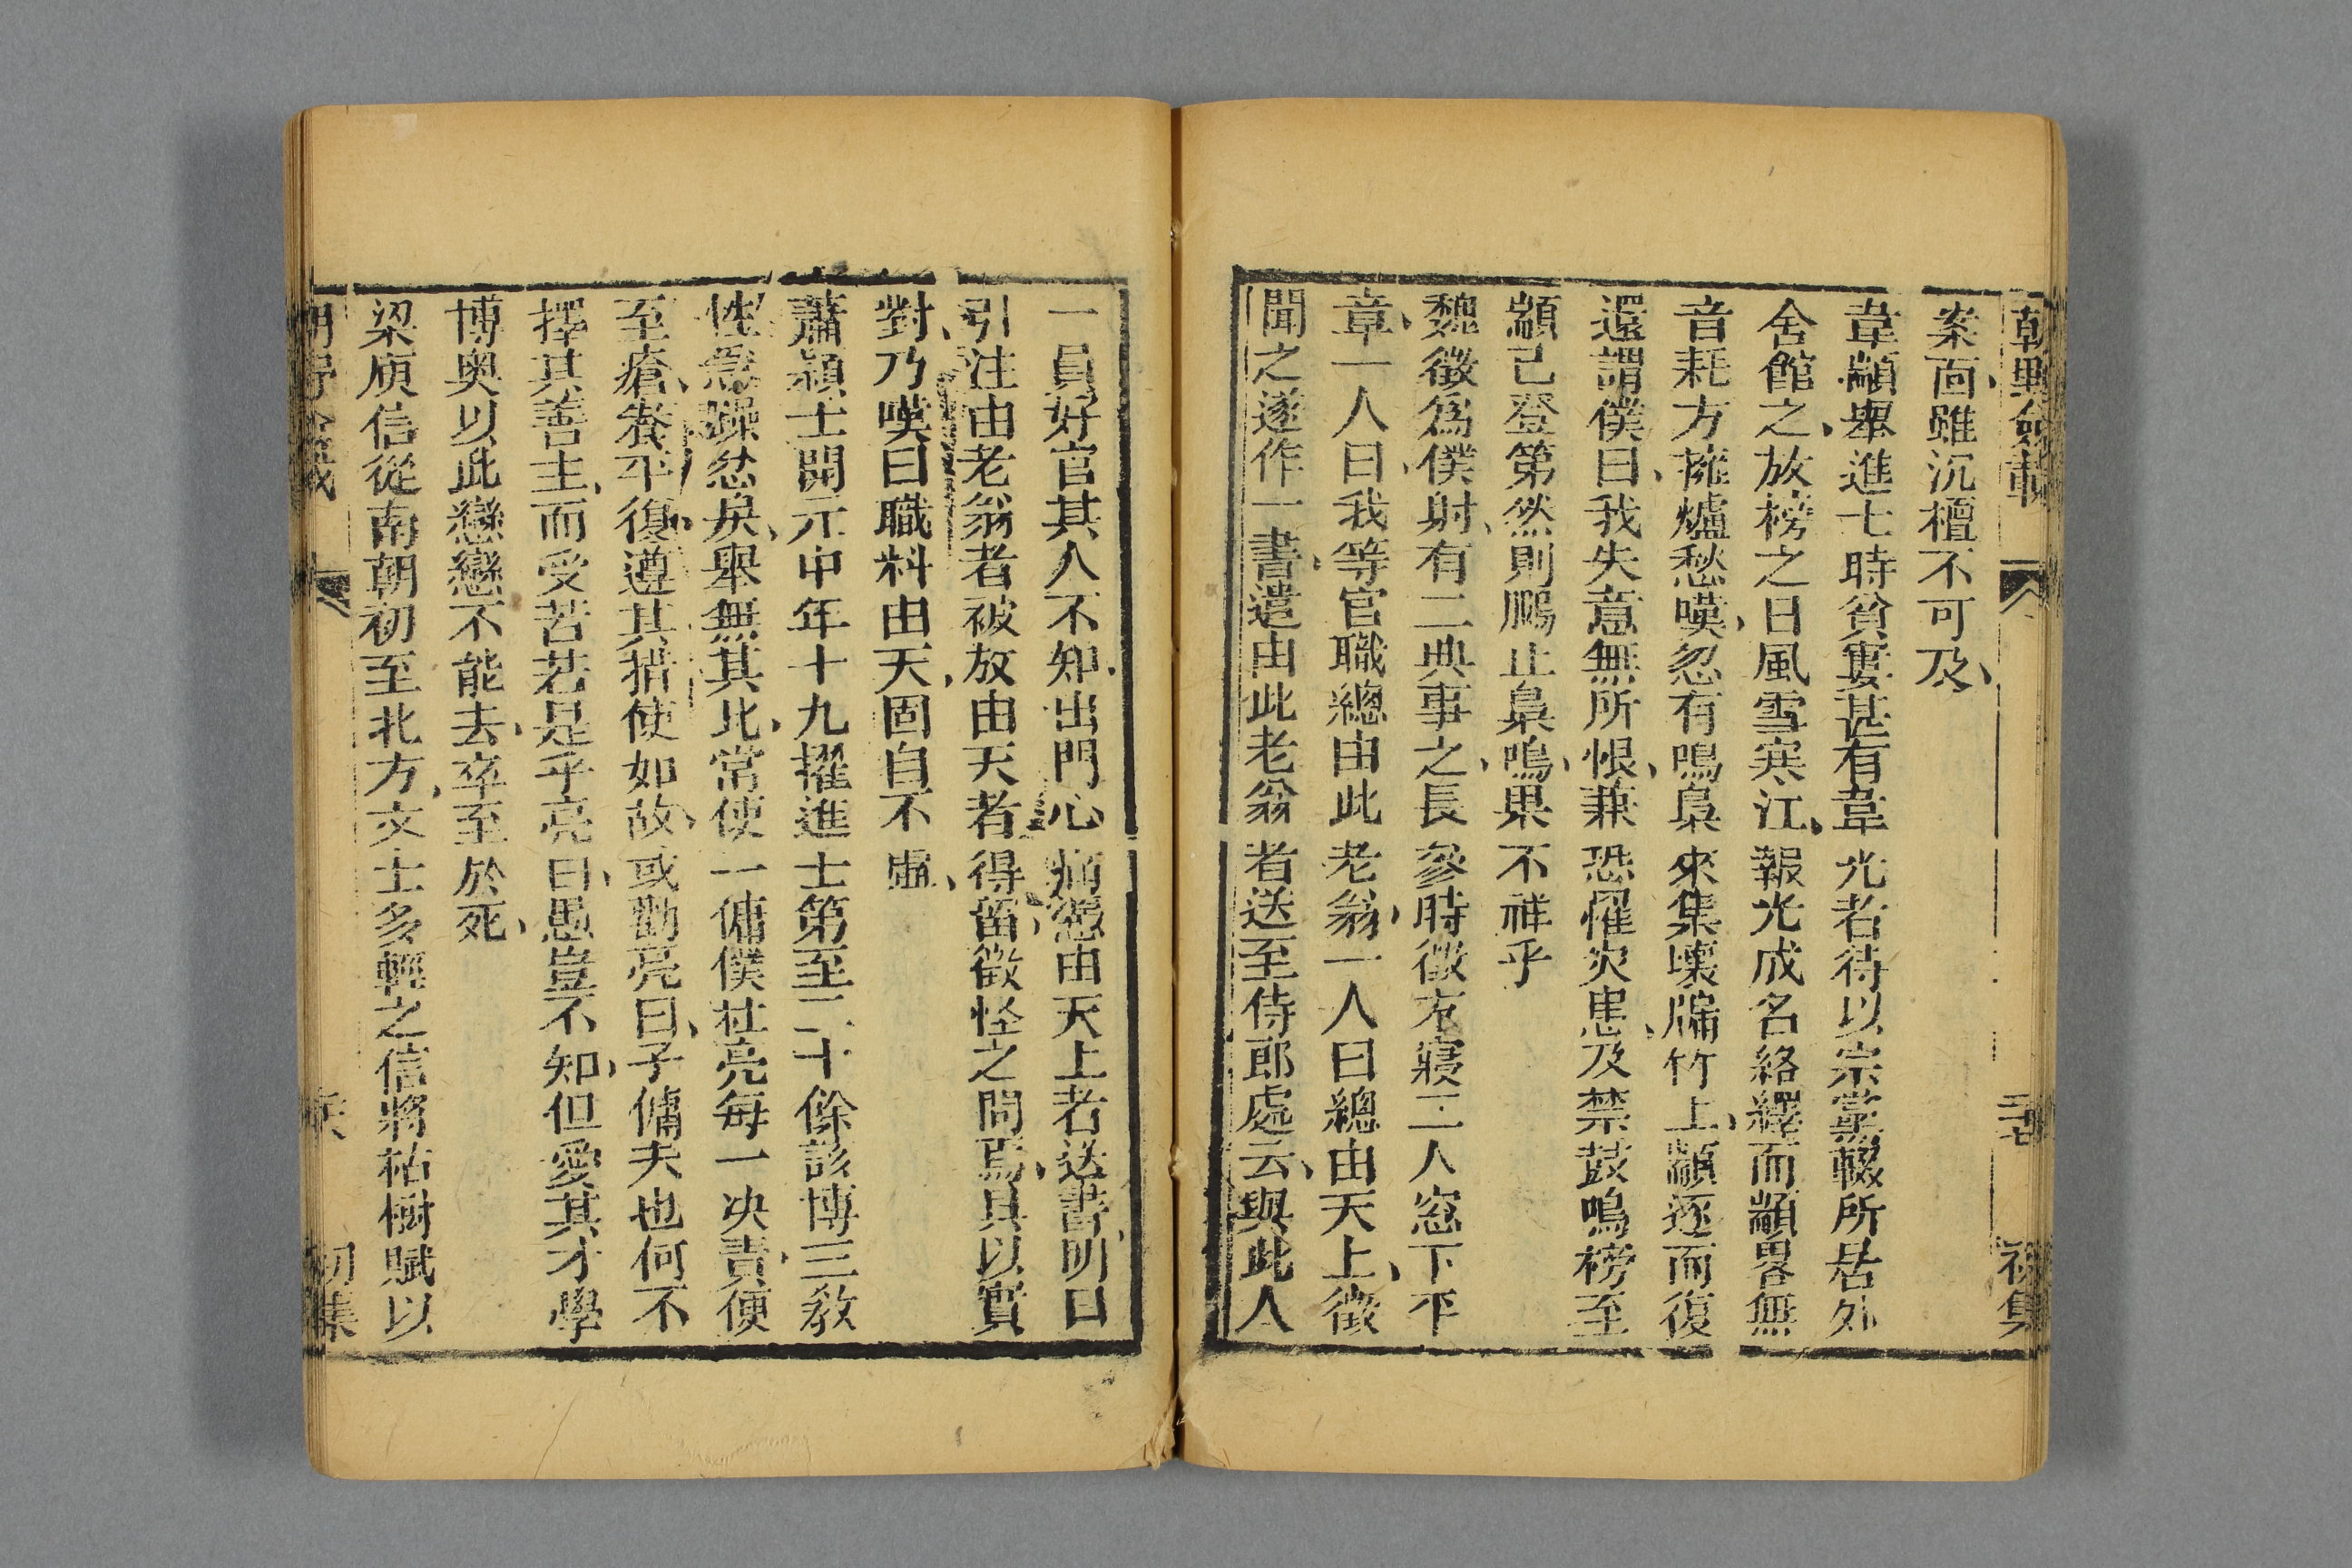 朝野僉載 初集
案面雖沉檀不可及
韋顓舉進士時貧窶甚有韋光者待以宗黨輟所居外
舍館之放榜之日風雪寒江報光成名絡繹而顓畧無
音耗方擁爐愁嘆忽有鳴梟來集壞牖竹上顓逐而復
還謂僕曰我失意無所恨兼恐罹灾患及禁鼓鳴榜至
顓已登第然則鵩止梟鳴果不祥乎
魏徵爲僕射有二典事之長參時徵方寢二人窓下平
章一人曰我等官職總由此老翁一人曰總由天上徵
聞之遂作一書遣由此老翁者送至侍郎處云與此人
一員好官其人不知出門心痛憑由天上者送書明日
引注由老翁者被放由天者得留徵怪之問焉具以實
對乃嘆曰職料由天固自不虛
蕭穎士開元中年十九擢進士第至二十餘該博三教
性急躁忿戾舉無其比常使一傭僕杜亮每一决責便
至瘡養平復遵其指使如故或勸亮曰子傭夫也何不
擇其善主而受苦若是乎亮曰愚豈不知但愛其才學
博奥以此戀戀不能去卒至於死
梁庾信從南朝初至北方文士多輕之信將枯樹賦以
初集